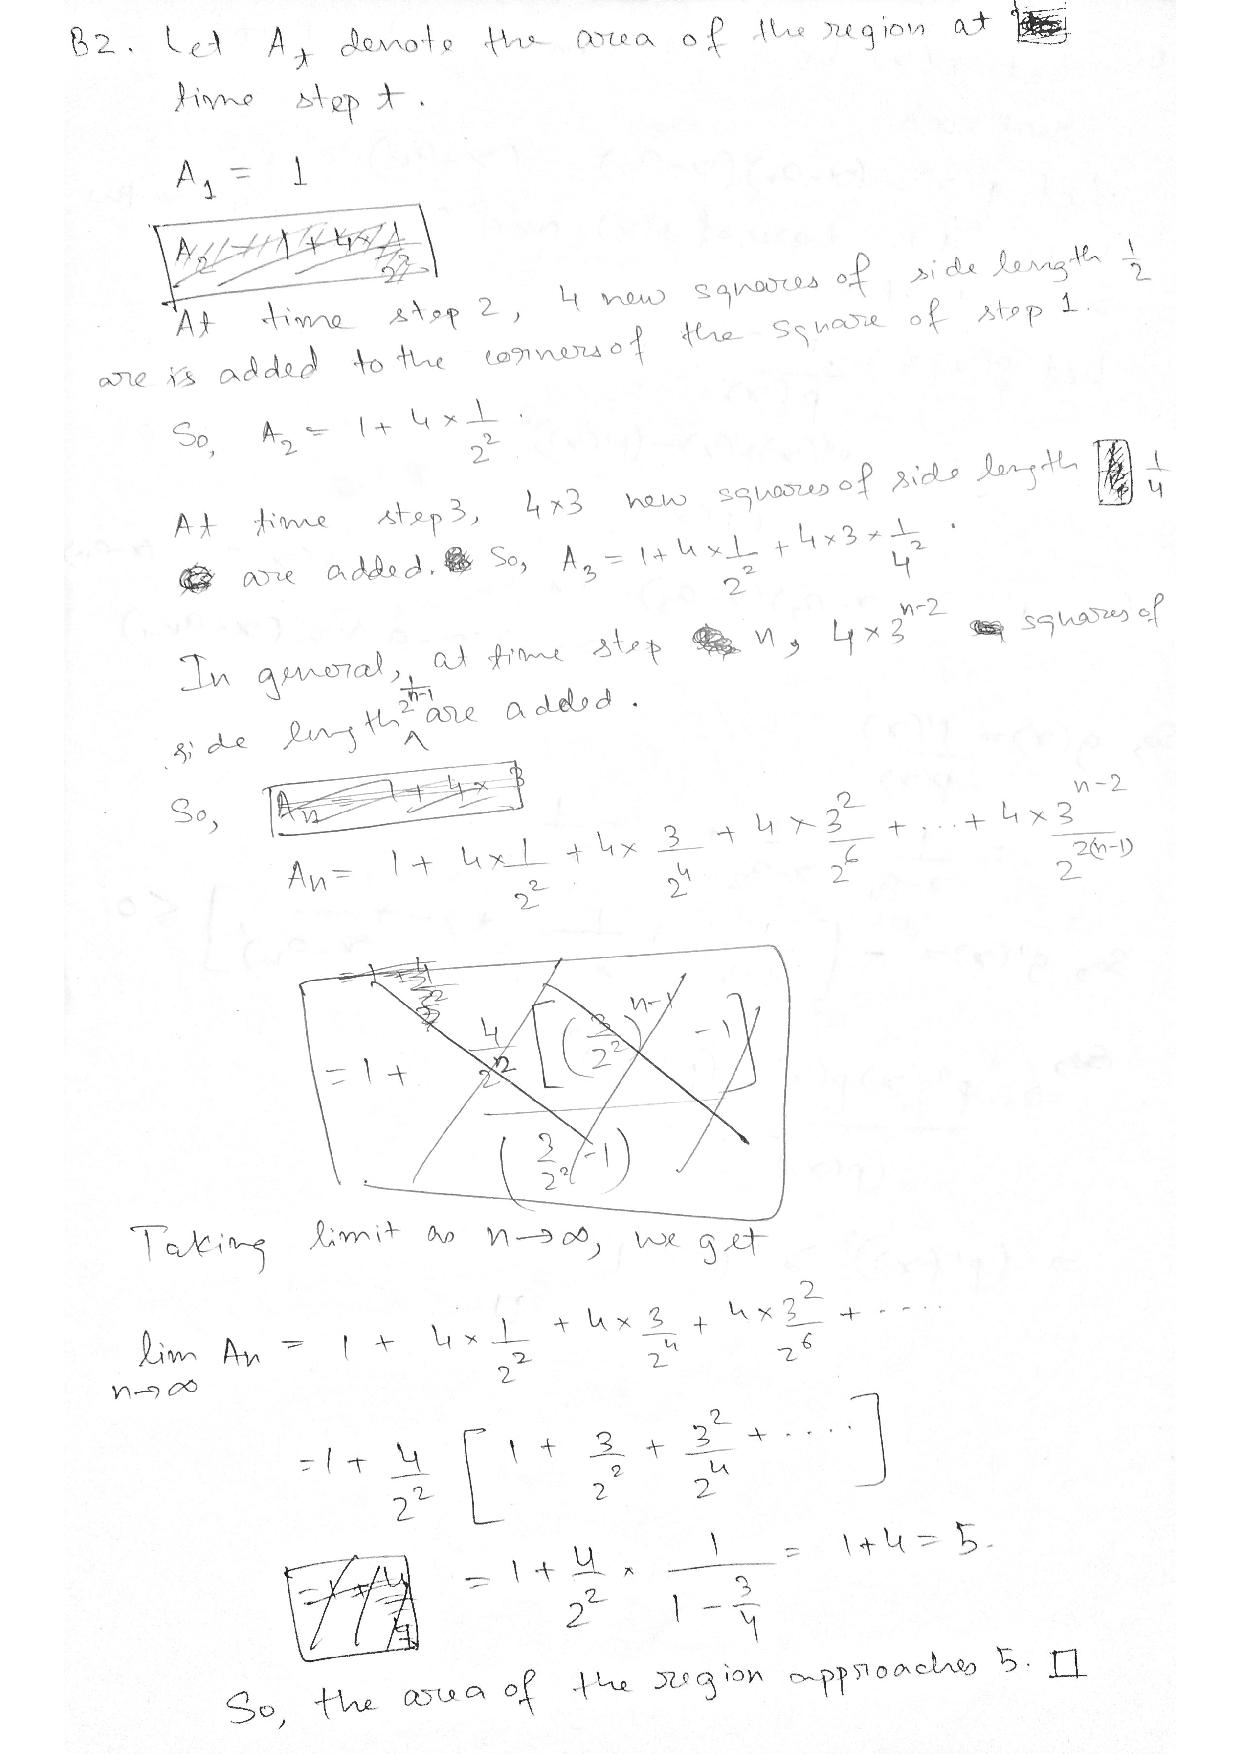 B2. Let A_t denote the area of the region at
time step t.
A_1 = 1
A_2 = 1 + 4 × 1/2^2
At time step 2, 4 new squares of side length 1/2
are is added to the corners of the square of step 1.
So, A_2 = 1 + 4 × 1/2^2.
At time step 3, 4×3 new squares of side length 1/4
are added. So, A_3 = 1 + 4 × 1/2^2 + 4×3 × 1/4^2.
In general, at time step n, 4×3^{n-2} squares of
side length 1/2^{n-1} are added.
So, A_n = 1 + 4 × 3
A_n = 1 + 4 × 1/2^2 + 4 × 3/2^4 + 4 × 3^2/2^6 + ... + 4 × 3^{n-2}/2^{2(n-1)}
= 1 + 4/2^2 [(3/2^2)^{n-1} - 1] / (3/2^2 - 1)
Taking limit as n→∞, we get
lim n→∞ A_n = 1 + 4 × 1/2^2 + 4 × 3/2^4 + 4 × 3^2/2^6 + .....
= 1 + 4/2^2 [1 + 3/2^2 + 3^2/2^4 + .....]
= 1 + 4/2^2 × 1/(1 - 3/4) = 1+4 = 5.
So, the area of the region approaches 5. □